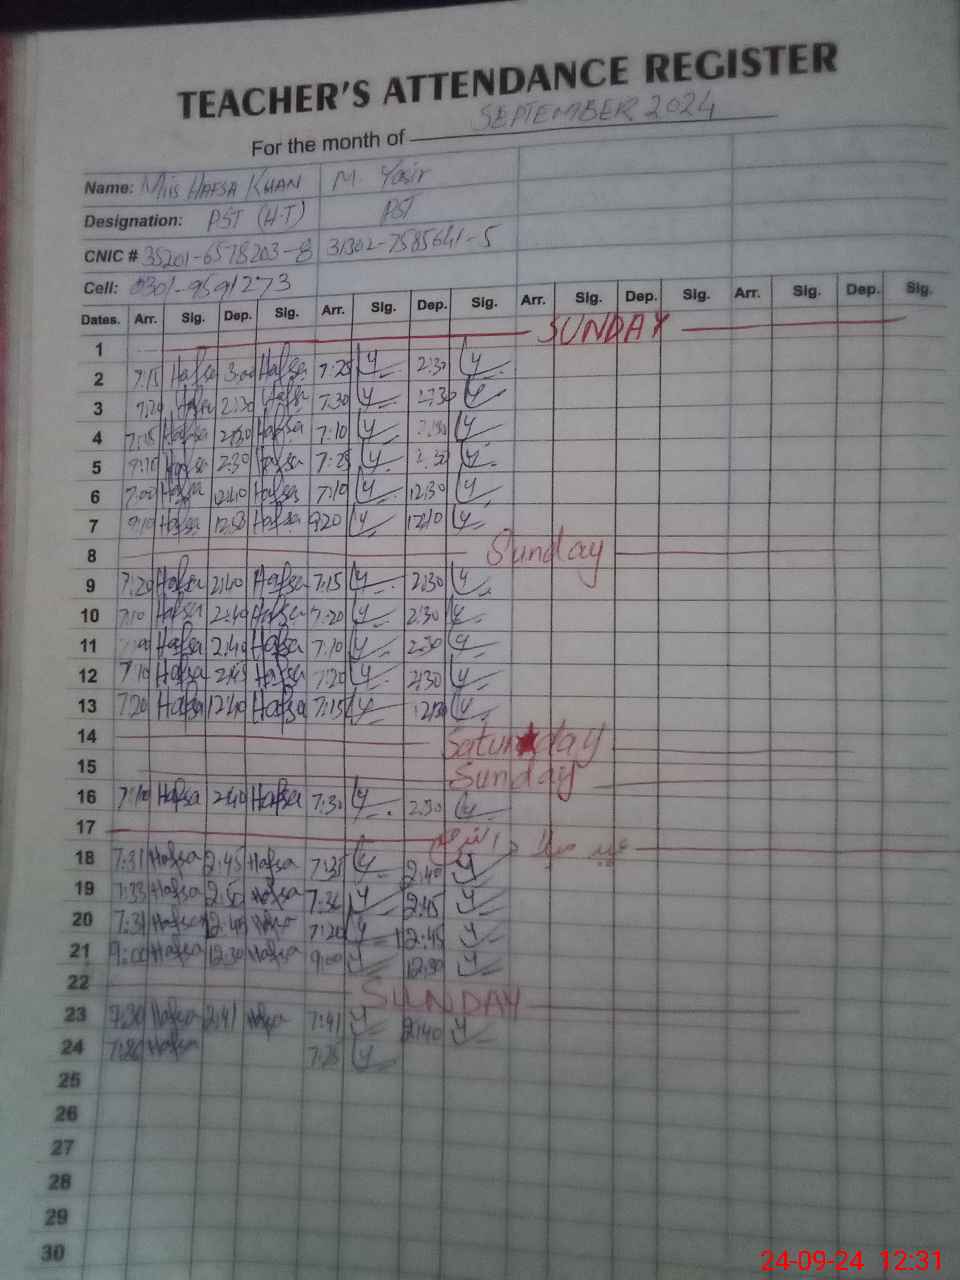 TEACHER'S ATTENDANCE REGISTER
For the month of SEPTEMBER 2024
Name: Miis HAFSA KHAN M. Yasir
Designation: PST (H.T) PST
CNIC # 35201-6578203-8 31302-7585641-5
Cell: 0301-9591273
Dates. Arr. Sig. Dep. Sig. Arr. Sig. Dep. Sig. Arr. Sig. Dep. Sig. Arr. Sig. Dep. Sig.
1 SUNDAY
2 7:15 Hafsa 3:00 Hafsa 7:25 y 2:30 y
3 7:20 Hafsa 2:30 Hafsa 7:30 y 2:30 y
4 7:15 Hafsa 2:30 Hafsa 7:10 y y
5 Hafsa 2:30 Hafsa 7:25 y y
6 7:00 Hafsa 12:40 Hafsa 7:10 y 12:30 y
7 9:10 Hafsa Hafsa 9:20 y 12:10 y
8 Sunday
9 7:20 Hafsa 2:40 Hafsa 7:15 y 2:30 y
10 7:10 Hafsa 2:40 Hafsa 7:20 y 2:30 y
11 Hafsa 2:40 Hafsa 7:10 y 2:30 y
12 7:10 Hafsa 2:45 Hafsa 7:20 y 2:30 y
13 7:20 Hafsa 12:40 Hafsa 7:15 y y
14 Saturday
15 Sunday
16 7:10 Hafsa 2:40 Hafsa 7:30 y 2:30 y
17 عید میلاد النبی
18 7:31 Hafsa 2:45 Hafsa 7:35 y 2:40 y
19 7:33 Hafsa 2:50 Hafsa 7:36 y 2:45 y
20 7:31 Hafsa 12:40 Hafsa 7:20 y 12:45 y
21 9:00 Hafsa 12:30 Hafsa 9:00 y 12:30 y
22 SUNDAY
23 7:30 Hafsa 2:41 Hafsa 7:41 y 2:40 y
24 Hafsa 7:25 y
25
26
27
28
29
30
24-09-24 12:31